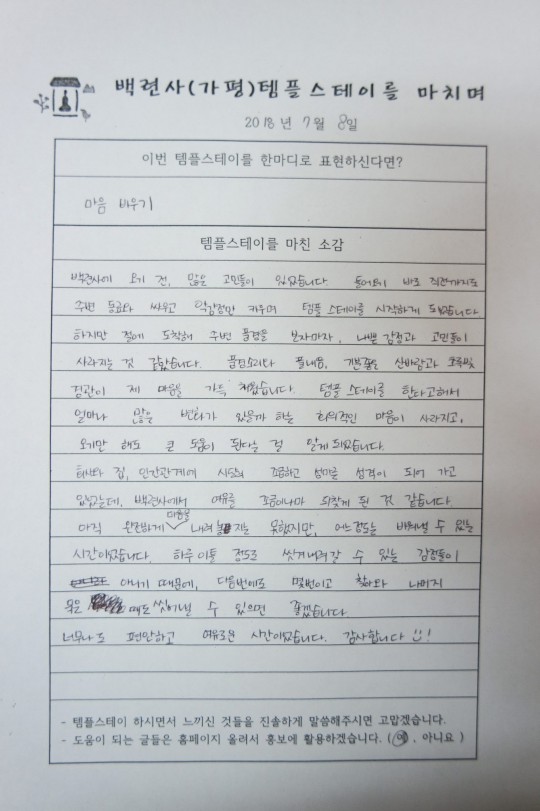 백련사(가평)템플스테이를 마치며
2018년 7월 8일
이번 템플스테이를 한마디로 표현하신다면?
마음 비우기
템플스테이를 마친 소감
백련사에 오기 전, 많은 고민들이 있었습니다. 들어오기 바로 직전까지도
주변 동료와 싸우고 악감정만 키우며 템플 스테이를 시작하게 되었습니다
하지만 절에 도착해 주변 풀경을 보자마자, 나쁜 감정과 고민들이
사라지는 것 같았습니다. 풀벌소리와 풀내음, 기분좋은 산바람과 초록빛
정관이 제 마음을 가득 채웠습니다. 템플 스테이를 한다고해서
얼마나 많은 변화가 있을까 하는 회의적인 마음이 사라지고,
오기만 해도 큰 도움이 된다는 걸 알게 되었습니다.
회사와 집, 인간관계에 시도때 조급하고 성마른 성격이 되어 가고
있었는데, 백련사에서 여유를 조금이나마 되찾게 된 것 같습니다.
아직 완전하게 마음을 내려 놓지는 못했지만, 어느정도는 비워낼 수 있는
시간이었습니다. 하루 이틀 정도로 씻겨내려갈 수 있는 감정들이
아니기 때문에, 다음번에도 몇번이고 찾아와 나머지
묵은 때도 씻어낼 수 있으면 좋겠습니다.
너무나도 편안하고 여유로운 시간이었습니다. 감사합니다 !
- 템플스테이 하시면서 느끼신 것들을 진솔하게 말씀해주시면 고맙겠습니다.
- 도움이 되는 글들은 홈페이지 올려서 홍보에 활용하겠습니다. (예 . 아니요 )